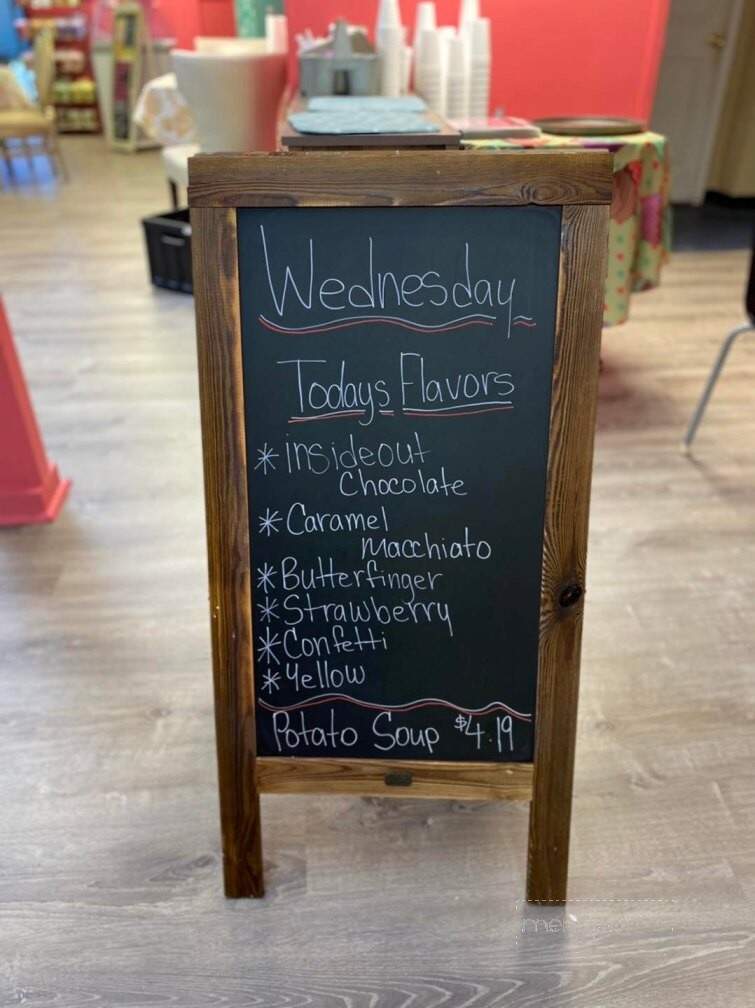 Wednesday
Todays Flavors
* insideout
Chocolate
* Caramel
Macchiato
* Butterfinger
* Strawberry
* Confetti
* Yellow
Potato Soup $4.19